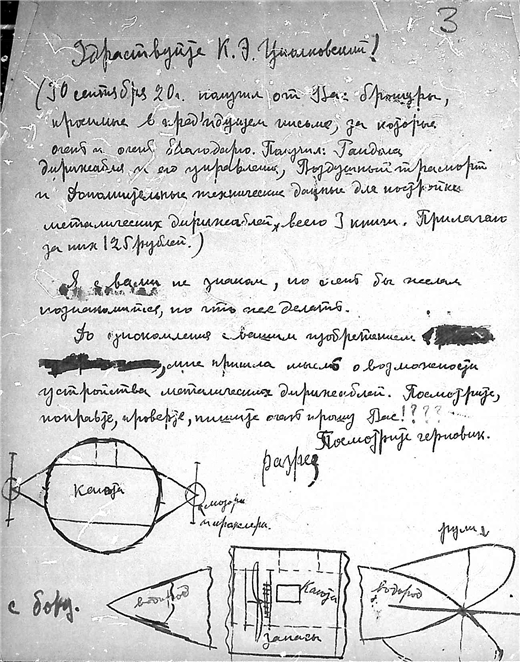 3
Здраствуйте К. Э. Циолковский!
(10 сентября 20 г. получил от Вас брошуры,
просимые в предъидущем письме, за которые
очень и очень благодарю. Получил: Гандола
дирижабля и его управление, Воздушный транспорт
и Дополнительные технические данные для постройки
металических дирижаблей, всего 3 книги. Прилагаю
за них 125 рублей.)
Я с вами не знаком, но очень бы желал
познакомится, но что же делать.
До ознокомления с вашим изобретением
мне пришла мысль о возможности
устройства металических дирижаблей. Посмотрите,
поправьте, проверьте, пишите очень прошу Вас!????
Посмотрите черновик.
разрез
Каюта
моторы
рули
с боку.
водород
Каюта
водород
запасы